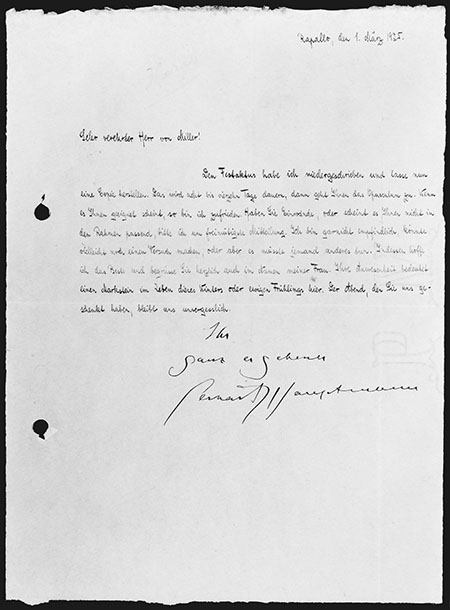 Rapallo, den 1. März 1925.
Sehr verehrter Herr von Miller!
Den Festaktus habe ich niedergeschrieben und lasse nun
eine Copie herstellen. Das wird acht bis vierzehn Tage dauern, dann geht Ihnen das Opusculum zu. Wenn
es Ihnen geeignet scheint, so bin ich zufrieden. Haben Sie Einwände, oder scheint es Ihnen nicht in
den Rahmen passend, bitte ich um freimütigste Mitteilung. Ich bin garnicht empfindlich, könnte
vielleicht noch einen Versuch machen, oder aber es müsste jemand anderes tun. Indessen hoffe
ich das Beste und begrüsse Sie herzlich auch im Namen meiner Frau. Ihre Anwesenheit bedeutet
einen Markstein im Leben dieses Winters oder ewigen Frühlings hier. Der Abend, den Sie uns ge-
schenkt haben, bleibt uns unvergesslich.
Ihr
ganz ergebener
Gerhart Hauptmann